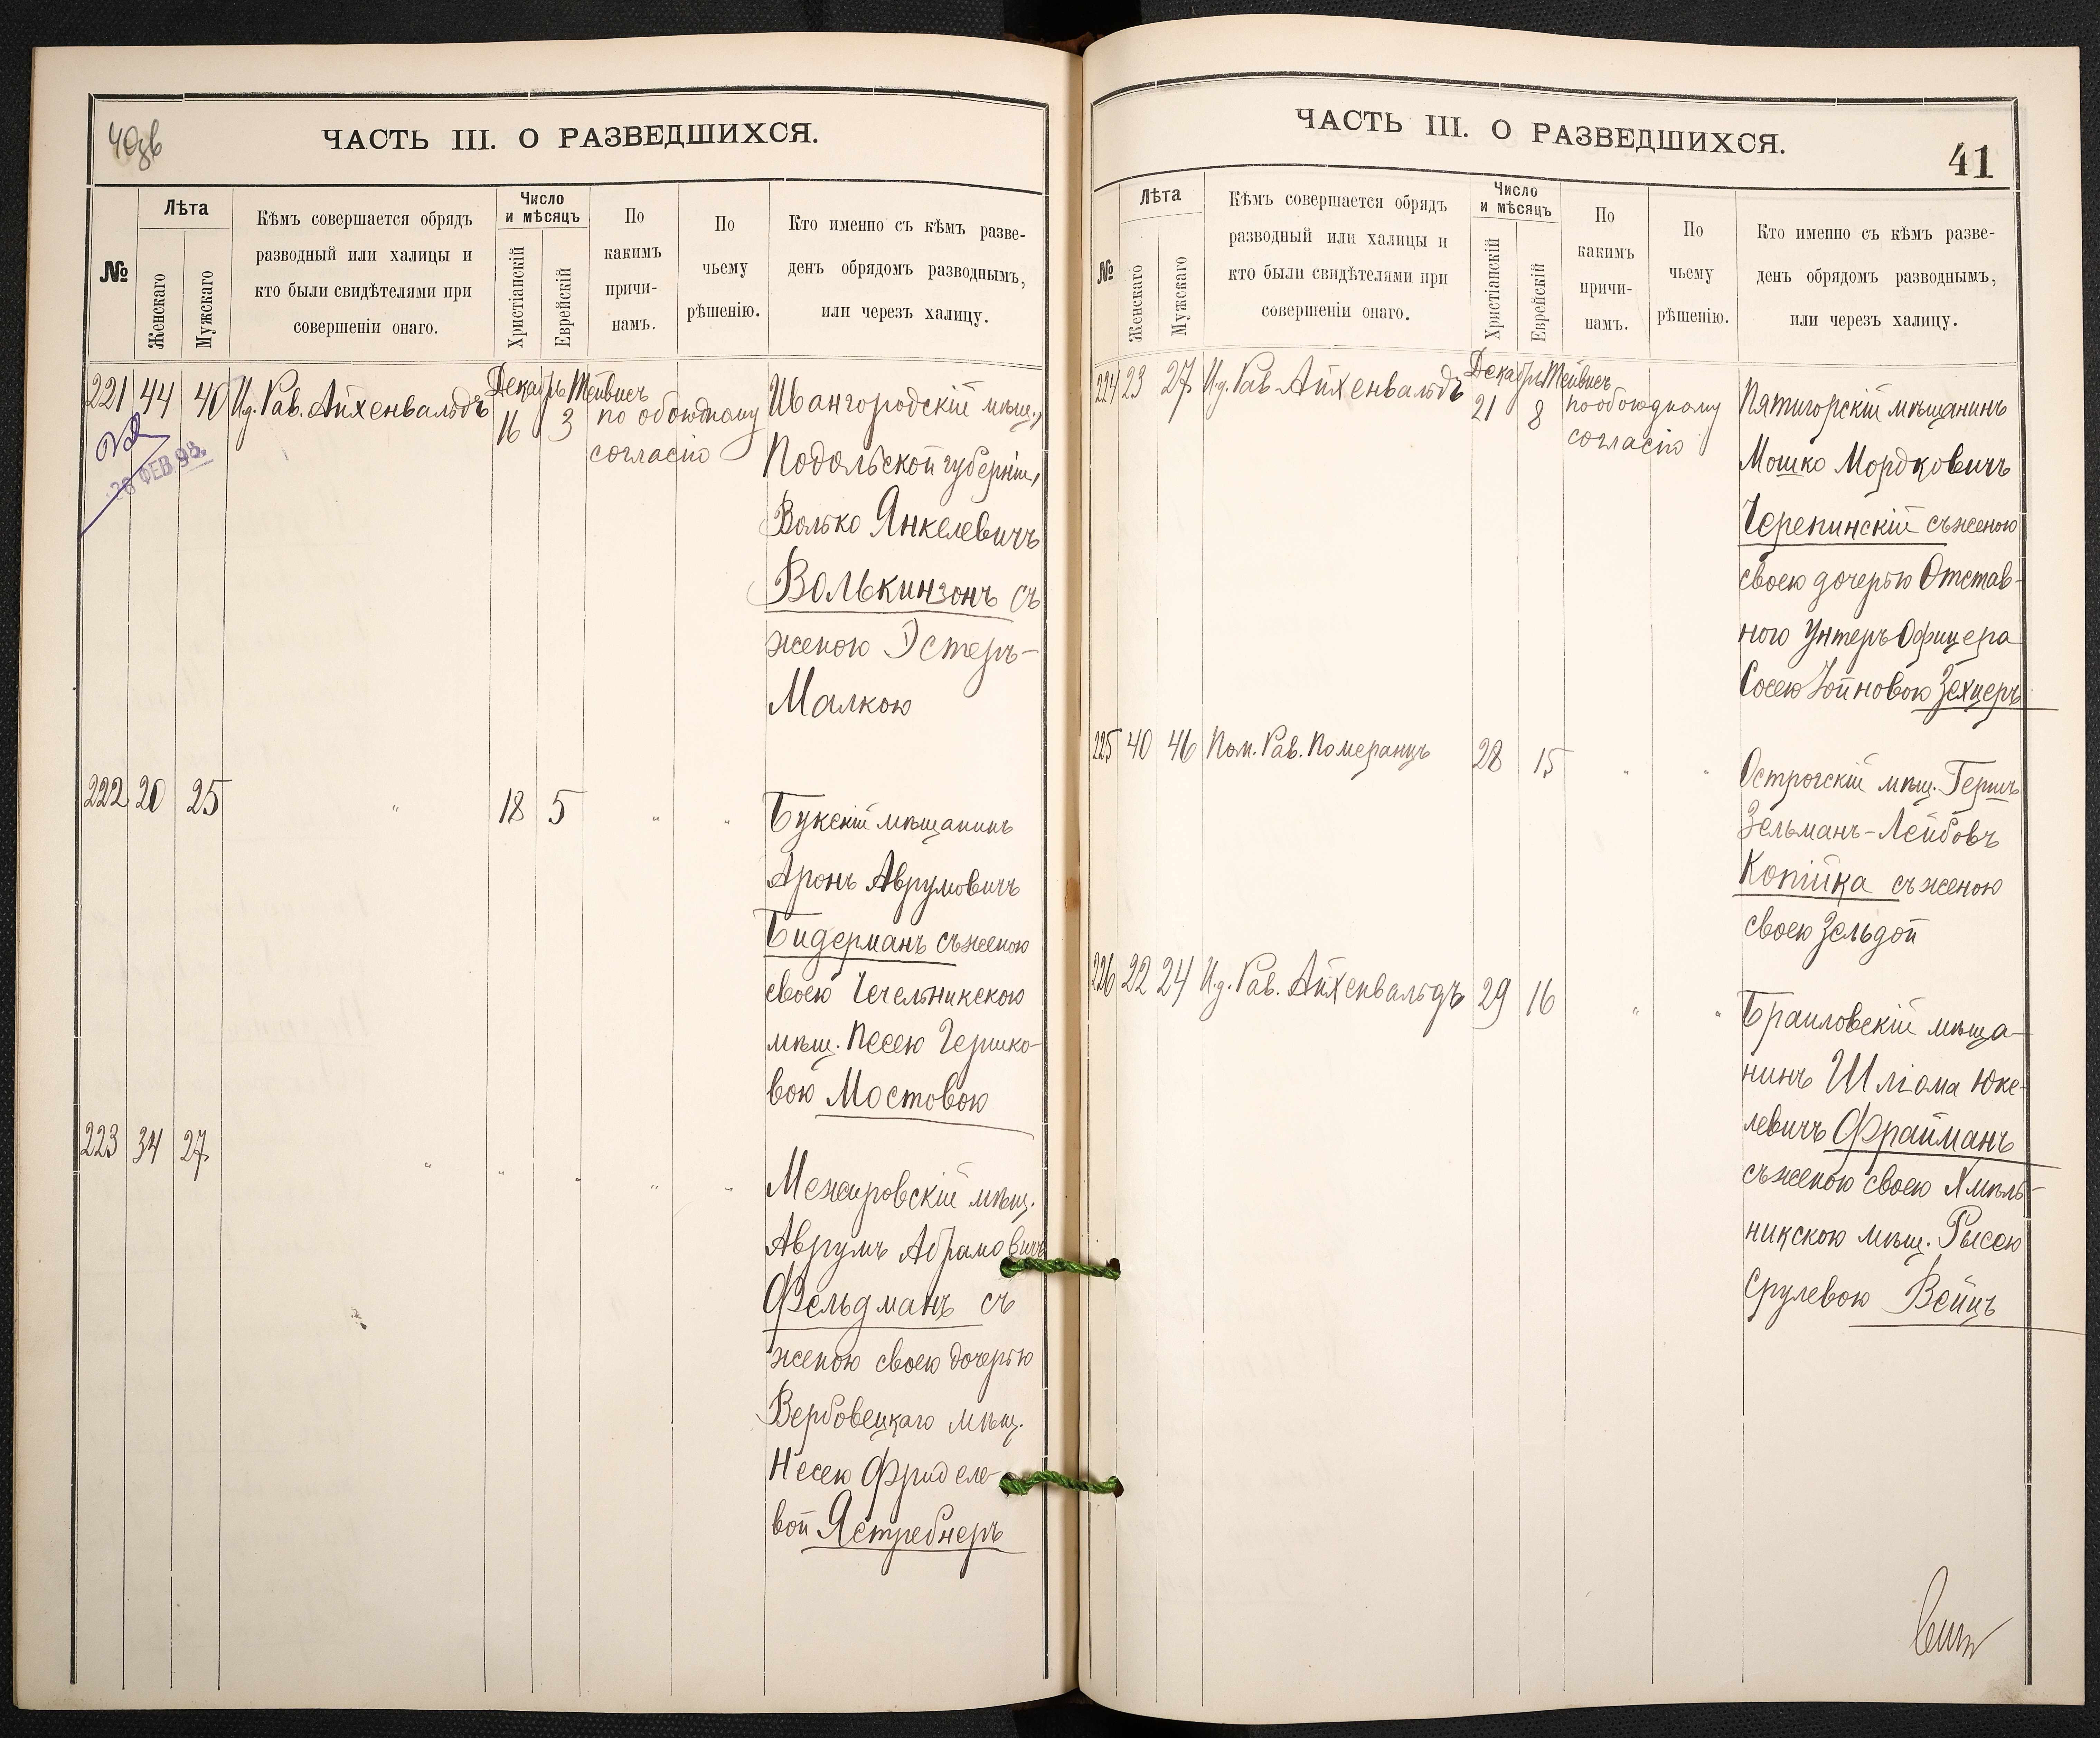 40зв
ЧАСТЬ III. О РАЗВЕДШИХСЯ.
№
Лѣта
Женскаго
Мужскаго
Кѣмъ совершается обрядъ
разводный или халицы и
кто были свидѣтелями при
совершеніи онаго.
Число
и мѣсяцъ
Христіанскій
Еврейскій
По
какимъ
причи-
намъ.
По
чьему
рѣшенію.
Кто именно съ кѣмъ разве-
денъ обрядомъ разводнымъ,
или черезъ халицу.
Декабрь Тейвисъ
221 44 40 И.д. Рав. Айхенвальдъ 16 3 по обоюдному
согласію
Ивангородскій мѣщ.,
Подольской губерніи,
Волько Янкелевичъ
Волькинзонъ съ
женою Эстеръ-
Малкою
ФЕВ 98.
222 20 25 " 18 5 " "
Букскій мѣщанинъ
Аронъ Аврумовичъ
Бидерманъ съ женою
своею Чечельникскою
мѣщ. Песею Гершко-
вою Мостовою
223 34 27 " " " " "
Межировскій мѣщ.
Аврумъ Абрамовичъ
Фельдманъ съ
женою своею дочерью
Вербовецкаго мѣщ.
Несею Фриделе-
вой Ястребнеръ
ЧАСТЬ III. О РАЗВЕДШИХСЯ.
41
№
Лѣта
Женскаго
Мужскаго
Кѣмъ совершается обрядъ
разводный или халицы и
кто были свидѣтелями при
совершеніи онаго.
Число
и мѣсяцъ
Христіанскій
Еврейскій
По
какимъ
причи-
намъ.
По
чьему
рѣшенію.
Кто именно съ кѣмъ разве-
денъ обрядомъ разводнымъ,
или черезъ халицу.
Декабрь Тейвисъ
224 23 27 И.д. Рав. Айхенвальдъ 21 8 по обоюдному
согласію
Пятигорскій мѣщанинъ
Мошко Мордковичъ
Черепинскій съ женою
своею дочерью Отстав-
ного Унтеръ Офицера
Сосею Іойновою Зехцеръ
225 40 46 Пом. Рав. Померанцъ 28 15 " "
Острогскій мѣщ. Гершъ
Зельманъ-Лейбовъ
Копійка съ женою
своею Зельдой
226 22 24 И.д. Рав. Айхенвальдъ 29 16 " "
Браиловскій мѣща-
нинъ Шліома Юке-
левичъ Фрайманъ
съ женою своею Хмѣль-
никскою мѣщ. Рысею
Срулевою Вейцъ